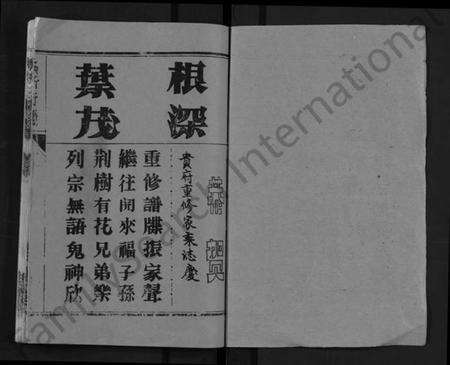 貴府重修家乘誌慶
根深
葉茂
重修譜牒振家聲
繼往開來福子孫
荆樹有花兄弟樂
列宗無語鬼神欣
FamilySearch International